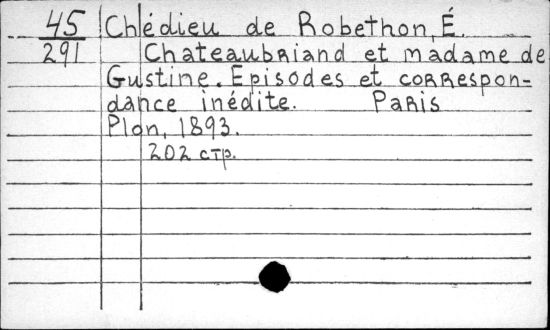 45 Chédieu de Robethon, É.
291 Chateaubriand et madame de
Gustine. Episodes et correspon-
dance inédite. Paris
Plon, 1893.
202 стр.